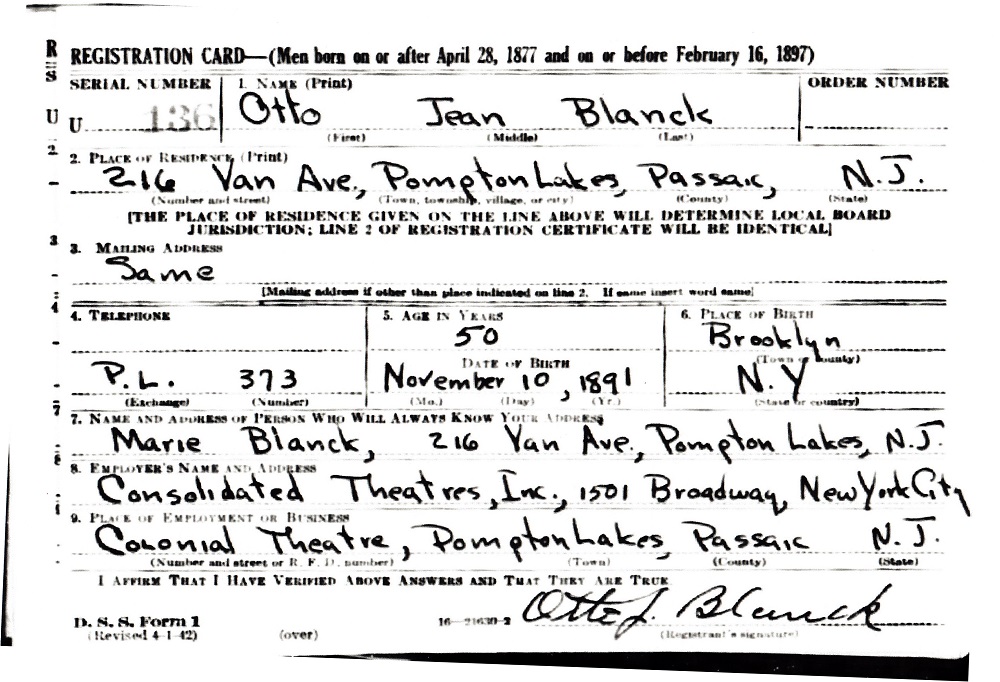 REGISTRATION CARD—(Men born on or after April 28, 1877 and on or before February 16, 1897)
SERIAL NUMBER 1. NAME (Print) ORDER NUMBER
U 136 Otto Jean Blanck
(First) (Middle) (Last)
2. PLACE OF RESIDENCE (Print)
216 Van Ave., Pompton Lakes, Passaic, N.J.
(Number and street) (Town, township, village, or city) (County) (State)
[THE PLACE OF RESIDENCE GIVEN ON THE LINE ABOVE WILL DETERMINE LOCAL BOARD
JURISDICTION; LINE 2 OF REGISTRATION CERTIFICATE WILL BE IDENTICAL]
3. MAILING ADDRESS
Same
[Mailing address if other than place indicated on line 2. If same insert word same]
4. TELEPHONE 5. AGE IN YEARS 6. PLACE OF BIRTH
50 Brooklyn
DATE OF BIRTH (Town or county)
P.L. 373 November 10, 1891 N.Y
(Exchange) (Number) (Mo.) (Day) (Yr.) (State or country)
7. NAME AND ADDRESS OF PERSON WHO WILL ALWAYS KNOW YOUR ADDRESS
Marie Blanck, 216 Van Ave., Pompton Lakes, N.J.
8. EMPLOYER'S NAME AND ADDRESS
Consolidated Theatres, Inc., 1501 Broadway, New York City
9. PLACE OF EMPLOYMENT OR BUSINESS
Colonial Theatre, Pompton Lakes, Passaic N.J.
(Number and street or R. F. D. number) (Town) (County) (State)
I AFFIRM THAT I HAVE VERIFIED ABOVE ANSWERS AND THAT THEY ARE TRUE
D. S. S. Form 1 16—21630-2 Otto J. Blanck
(Revised 4-1-42) (over) (Registrant's signature)